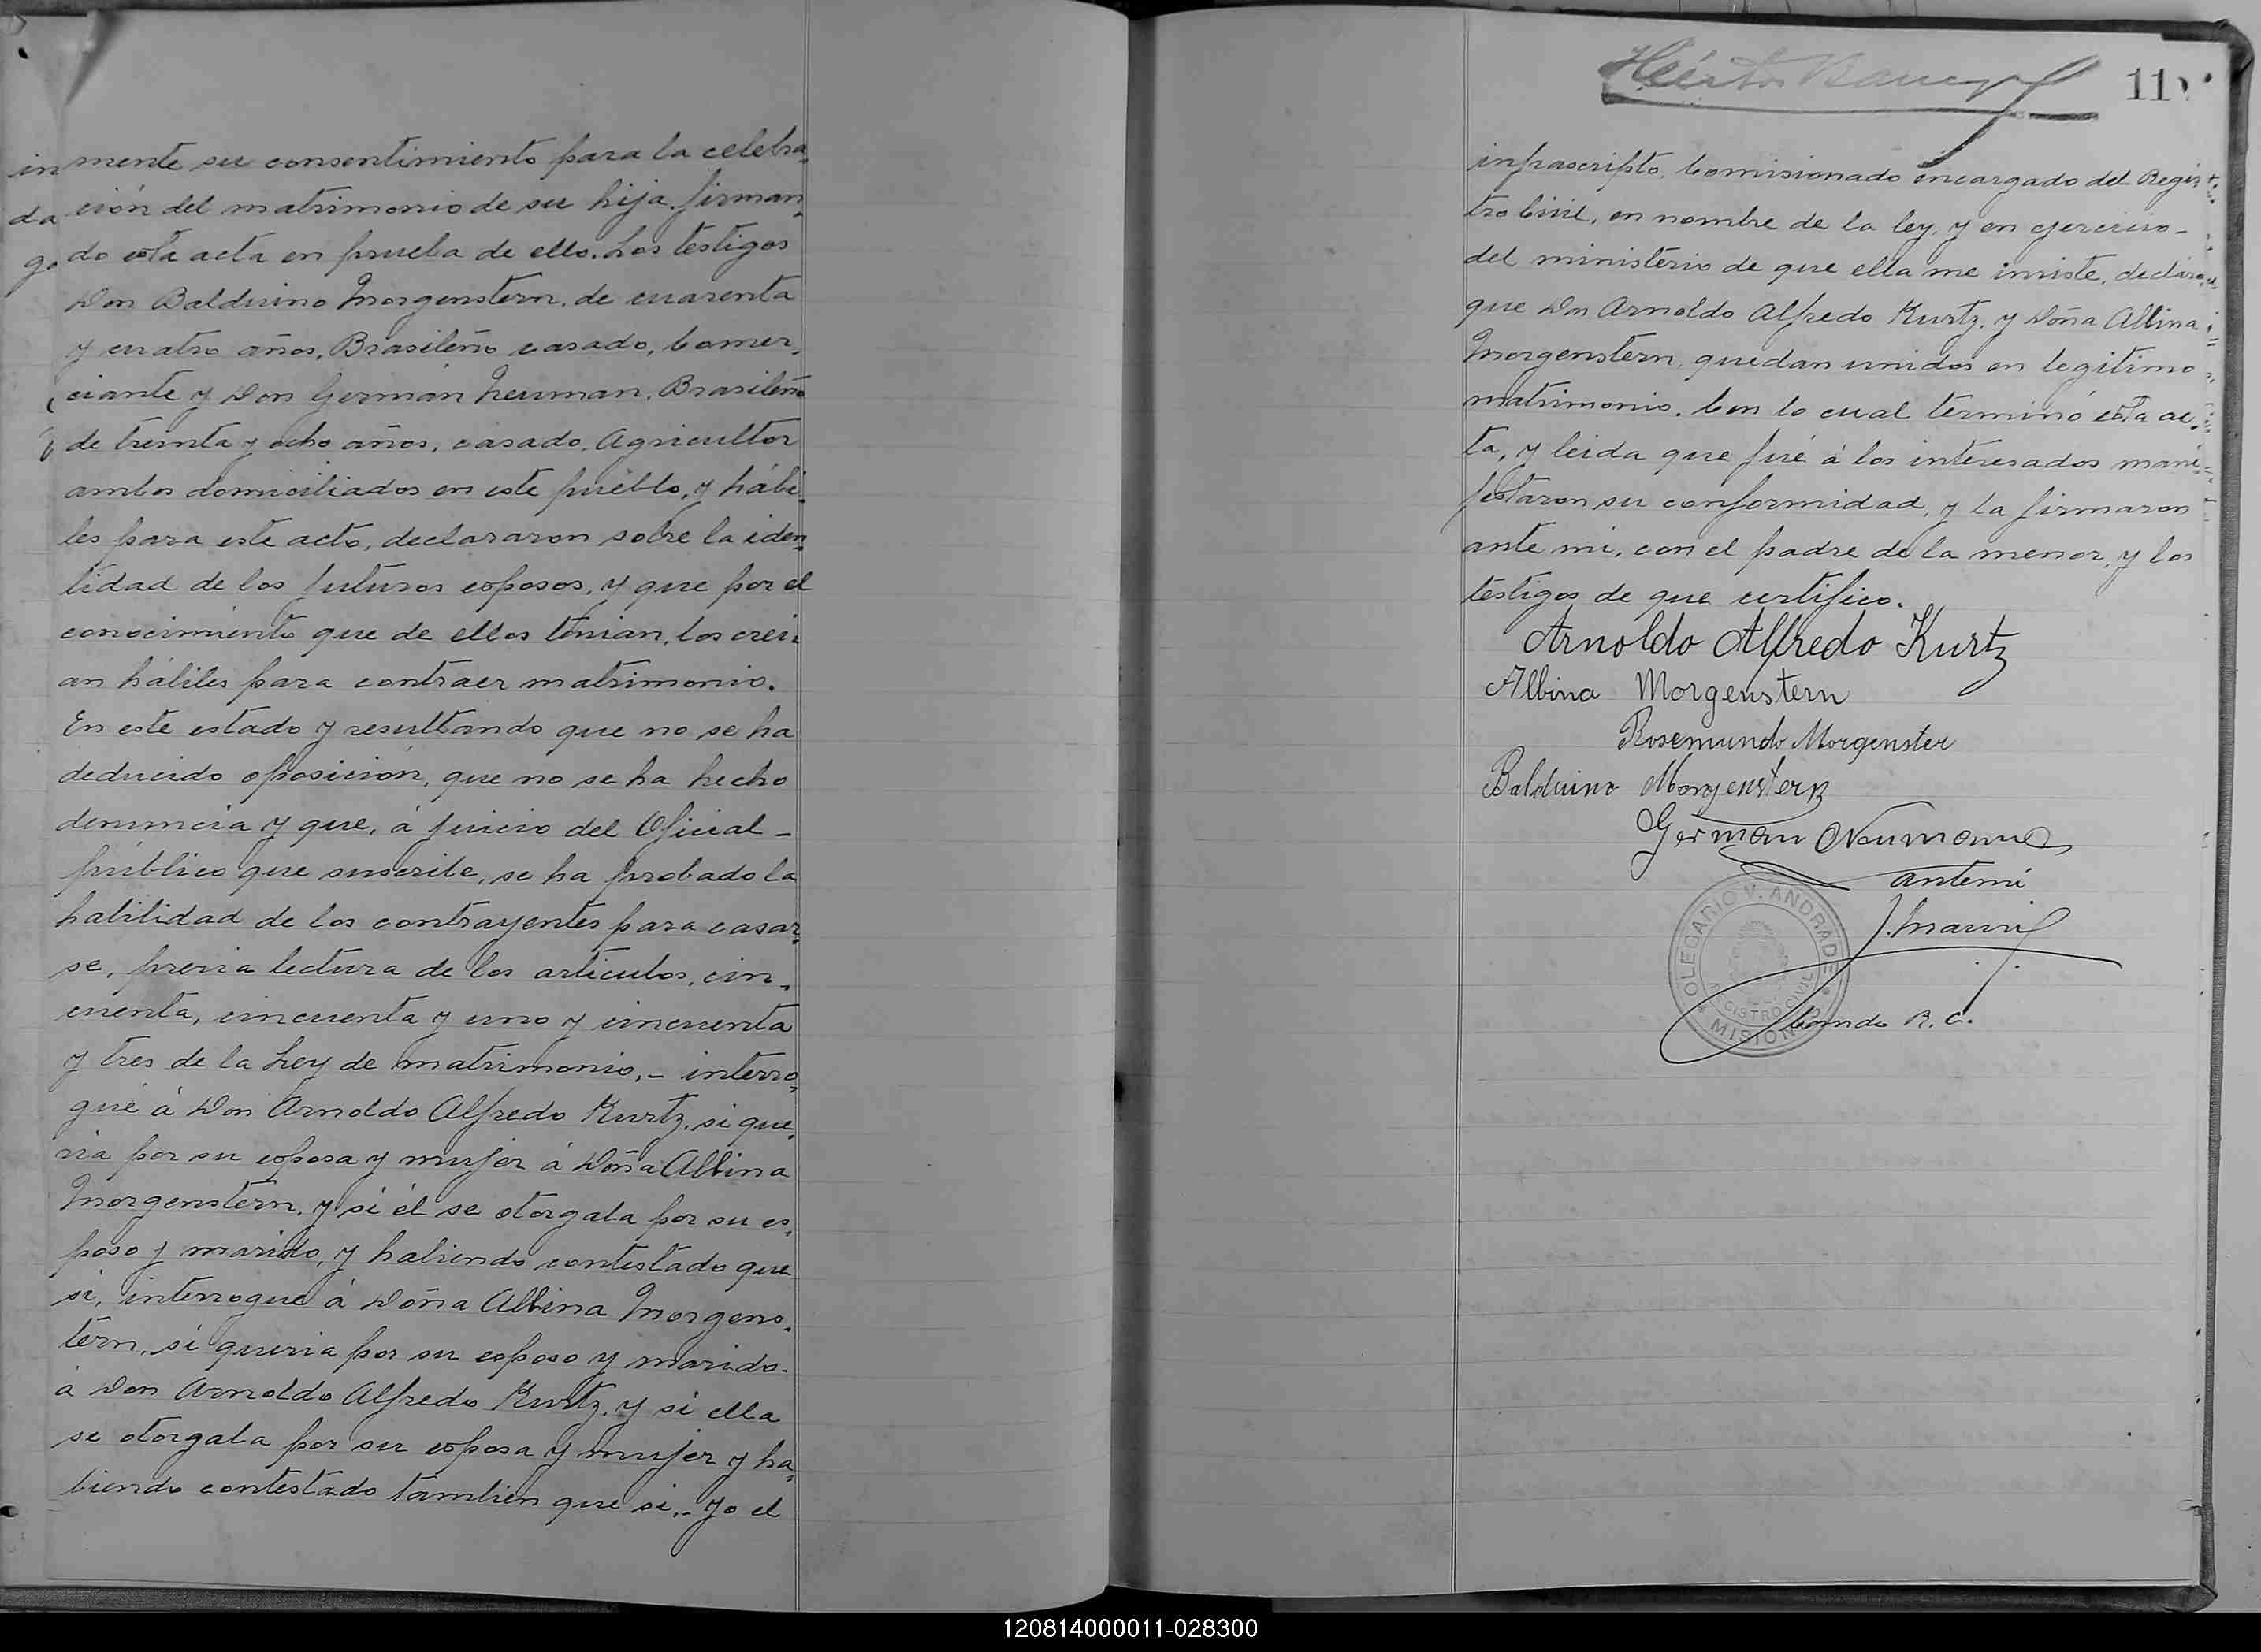 mente su consentimiento para la celebra-
ción del matrimonio de su hija, firman-
do esta acta en prueba de ello. Los testigos
Don Balduino Morgenstern, de cuarenta
y cuatro años, Brasileño casado, Comer-
ciante y Don Germán Neuman, Brasileño
de treinta y ocho años, casado, Agricultor
ambos domiciliados en este pueblo, y hábi-
les para este acto, declararon sobre la iden-
tidad de los futuros esposos, y que por el
conocimiento que de ellos tenian, los crei-
an hábiles para contraer matrimonio.
En este estado y resultando que no se ha
deducido oposición, que no se ha hecho
denuncia y que, á juicio del Oficial -
público que suscribe, se ha probado la
habilidad de los contrayentes para casar-
se, previa lectura de los articulos, cin-
cuenta, cincuenta y uno y cincuenta
y tres de la Ley de matrimonio,- interro-
gué á Don Arnoldo Alfredo Kurtz, si que-
ria por su esposa y mujer á Doña Albina
Morgenstern, y si él se otorgaba por su es-
poso y marido, y habiendo contestado que
si, interrogué á Doña Albina Morgens-
tern, si queria por su esposo y marido-
á Don Arnoldo Alfredo Kurtz, y si ella
se otorgaba por su esposa y mujer y ha-
biendo contestado tambien que si,- Yo el
11
infrascripto, Comisionado encargado del Regis-
tro Civil, en nombre de la ley, y en ejercicio-
del ministerio de que ella me inviste, declaro,
que Don Arnoldo Alfredo Kurtz, y Doña Albina
Morgenstern, quedan unidos en legitimo
matrimonio. Con lo cual terminó esta ac-
ta, y leida que fué á los interesados mani-
festaron su conformidad, y la firmaron
ante mi, con el padre de la menor, y los
testigos de que certifico.
Arnoldo Alfredo Kurtz
Albina Morgenstern
Rosemundo Morgenster
Balduino Morgenstern
German Neumann
ante mi
OLEGARIO V. ANDRADE
REGISTRO CIVIL
MISIONES
R. C.
120814000011-028300